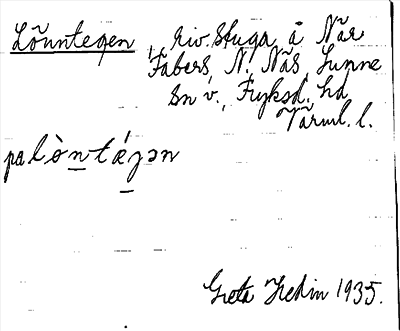 Lönnteqen, riv. Stuga å När
Fabers, N. Näs, Sunne
sn v., Fryksd. hd
Värml. l.
pa lòntǽɟən
Greta Hedin 1935.